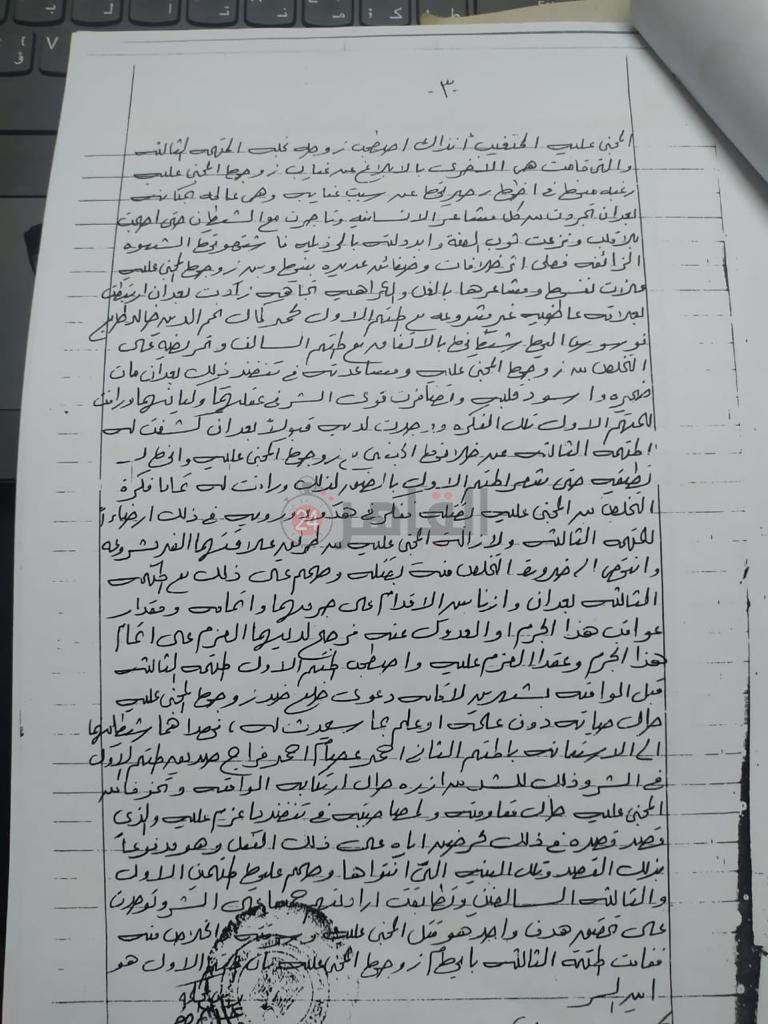 -٣-
المجني عليه المتغيب آنذاك اصطحب زوجه نجله المتهمة الثالثة
والتي قامت هي الاخرى بالابلاغ عن غياب زوجها المجني عليه
رغبه منها في اظهار حيرتها عن سبب غيابه وهي عالمة بمكانه
بعد ان تجردت من كل مشاعر الانسانيه وتاجرت مع الشيطان حتى اصبحت
بلا قلب ونزعت ثوب العفة وابدولته بالرذيله فاشتهوتها الشهوه
الزائفه فعلى اثر خلافات وضغائن عديده بينها وبين زوجها المجني عليه
ملات نفسها ومشاعرها بالغل والكراهيه تجاهه زادت بعد ان ارتبطت
بعلاقه عاطفيه غير مشروعه مع المتهم الاول محمد كمال نجم الدين
فوسوس اليها شيطانها بالاتفاق مع المتهم السالف وتحريضه على
التخلص من زوجها المجني عليه ومساعدته في تنفيذ ذلك بعد ان مات
ضميره واسود قلبه وتضافرت قوى الشر في عقليهما ولبابهما وراقت
للمتهم الاول تلك الفكره ووجدت لديه قبولا بعد ان كشفت له
المتهمة الثالثه عن خلافها مع زوجها المجني عليه
حتى شعر المتهم الاول بالضرر لذلك وراقت له تماما فكرة
التخلص من المجني عليه بقتله ففكر في هدوء ورويه في ذلك ارضاءا
للمتهمة الثالثه ولازالة المجني عليه من طريق علاقتهما الغير مشروعه
وانتهى الى ضرورة التخلص منه بقتله وصمم على ذلك مع المتهمه
الثالثه بعد ان وازنا بين الاقدام على جرمهما واتمامه ومقدار
عواقب هذا الجرم او العدول عنه فرجح لديهما العزم على اتمام
هذا الجرم وعقدا العزم عليه واصطحب المتهم الاول المتهمة الثالثه
قبل الواقعه بشهرين لاقامه دعوى خلع ضد زوجها المجني عليه
حال حياته دون علمه او علم بما سيحدث له، فهداهما شيطانهما
الى الاستعانه بالمتهم الثاني احمد فراج صديق المتهم الاول
في الشر وذلك للشد من ازره حال ارتكابه الواقعه وتخوفا من
المجني عليه حال مقاومته ولمصاحبته في تنفيذ ما عزم عليه والذي
قصد قصده في ذلك بتحريضهم اياه على ذلك الفعل وهو مدفوعا
بذلك القصد وتلك النيه التي انتواها وصمم عليها المتهمين الاول
والثالثه السالفين وتطابقت ارادتهم جميعا على الشر وتوحدت
على تحقيق هدف واحد هو قتل المجني عليه والخلاص منه
فقامت المتهمة الثالثه بايهام زوجها المجني عليه بان المتهم الاول هو
القاهرة 24